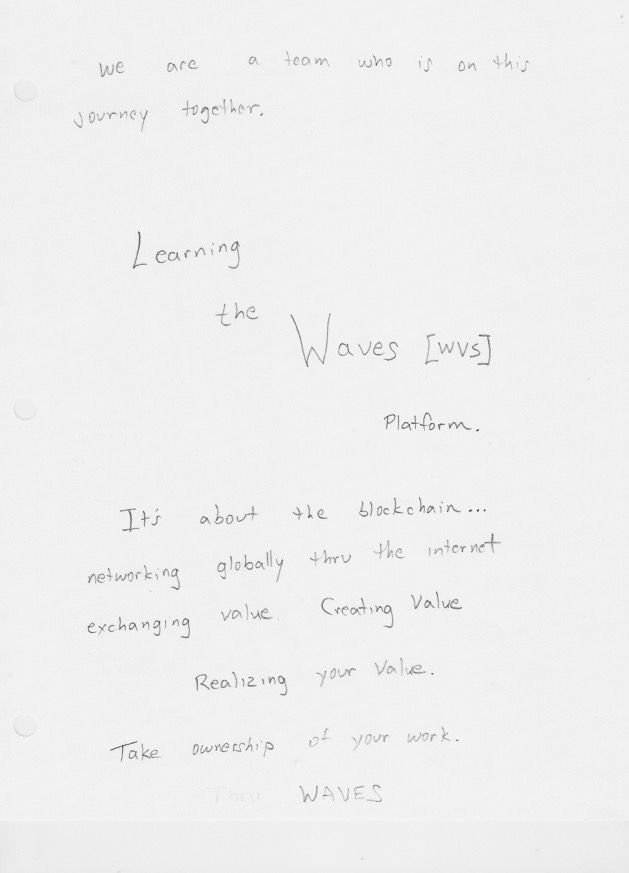 We are a team who is on this
journey together.
Learning
the
Waves [WVS]
Platform.
It's about the blockchain...
networking globally thru the internet
exchanging value. Creating Value
Realizing your Value.
Take ownership of your work.
Thru WAVES